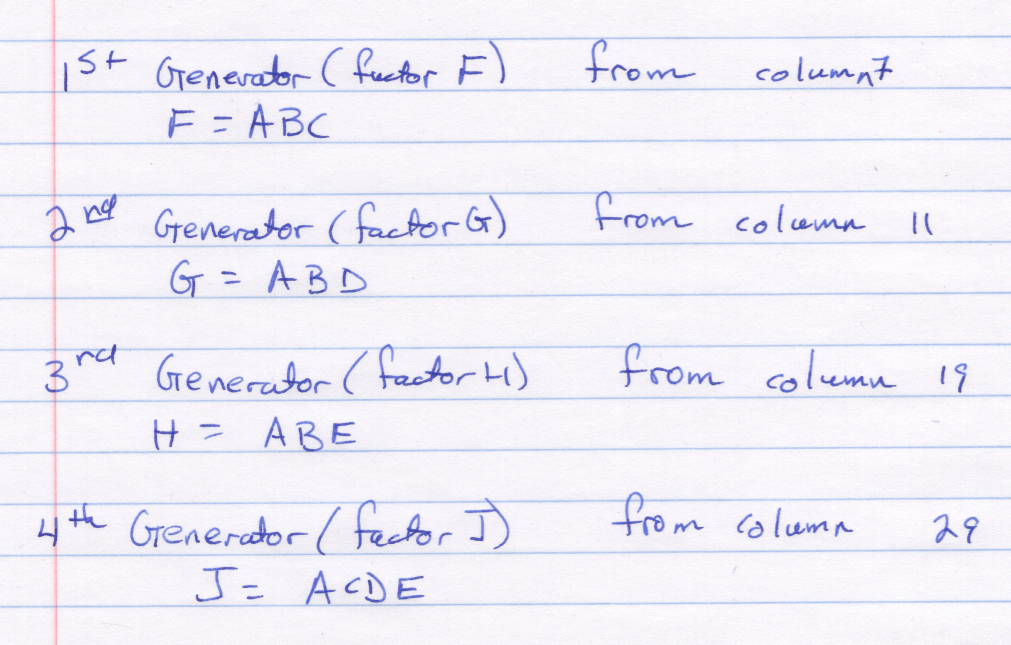 1st Generator (factor F) from column 7
F = ABC
2nd Generator (factor G) from column 11
G = ABD
3rd Generator (factor H) from column 19
H = ABE
4th Generator (factor J) from column 29
J = ACDE